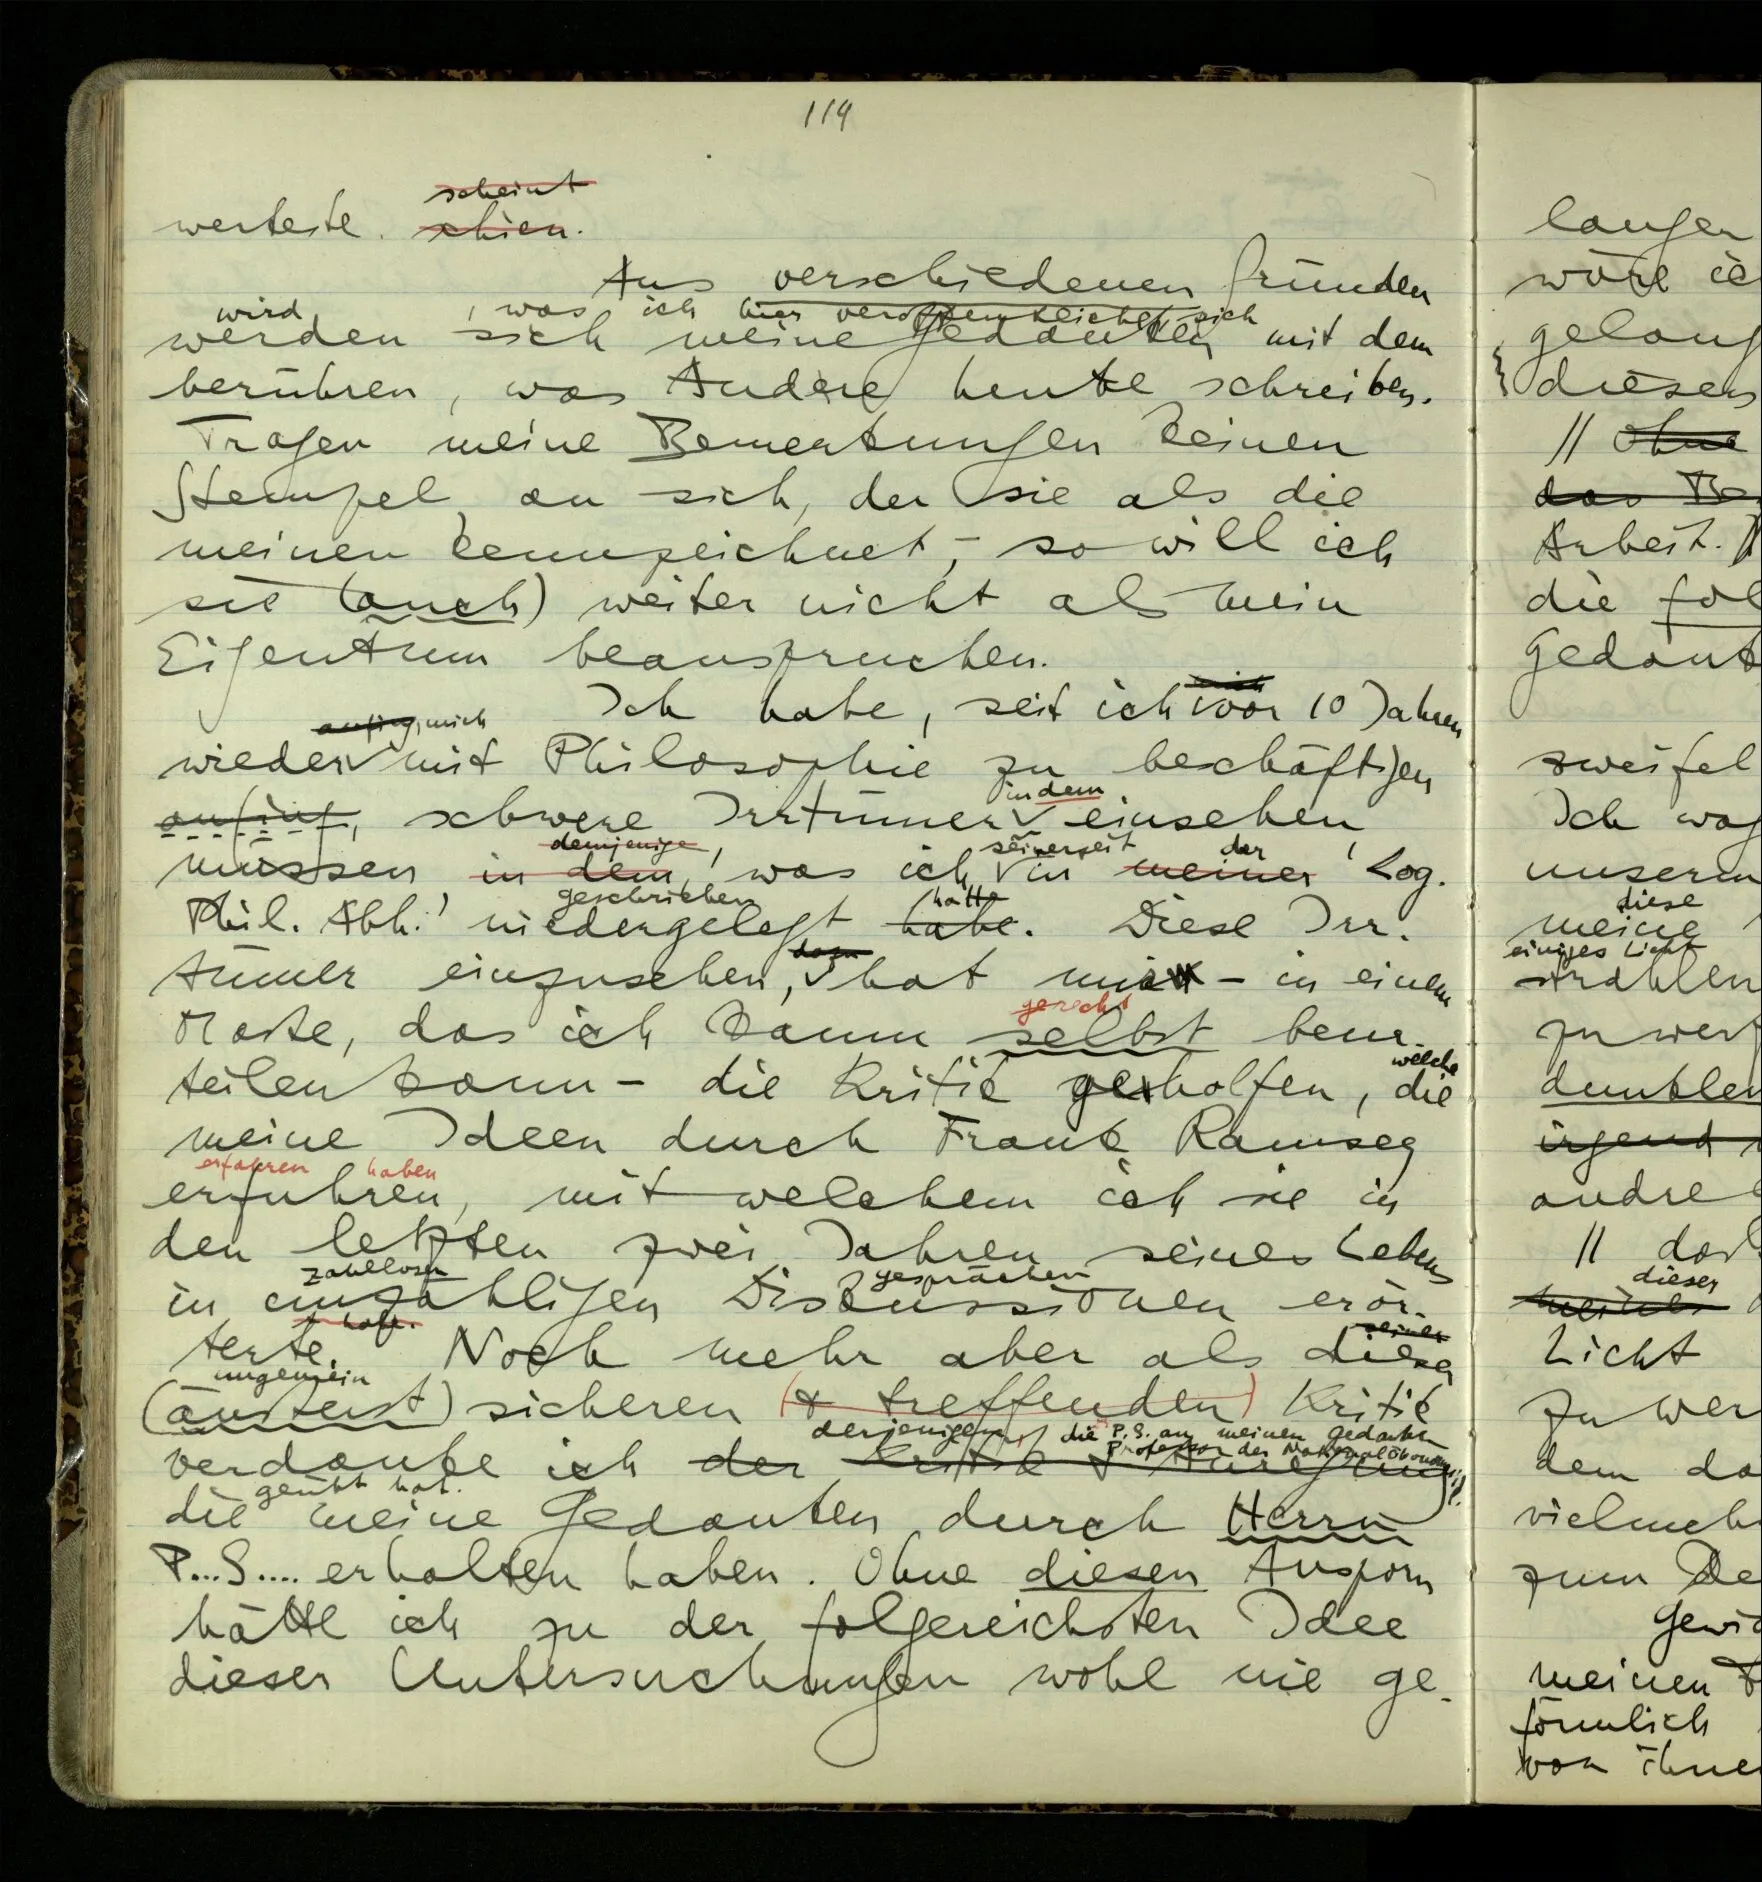 114
scheint
werteste. schien.
Aus verschiedenen Gründen
wird, was ich hier veröffentliche, sich
werden sich meine Gedanken mit dem
berühren, was Andere heute schreiben.
Tragen meine Bemerkungen keinen
Stempel an sich, der sie als die
meinen kennzeichnet, – so will ich
sie (auch) weiter nicht als mein
Eigentum beanspruchen.
mich
Ich habe, seit ich vor 10 Jahren
anfing, mich
wieder mit Philosophie zu beschäftigen
indem
anfing, schwere Irrtümer einsehen
demjenige, seinerzeit der
müssen in dem, was ich in meiner 'Log.
geschrieben hatte
Phil. Abh.' niedergelegt habe. Diese Irr-
dazu
tümer einzusehen, hat mir – in einem
gerecht
Maße, das ich kaum selbst beur-
welche
teilen kann – die Kritik geholfen, die
meine Ideen durch Frank Ramsey
erfahren haben
erfuhren, mit welchem ich sie in
den letzten zwei Jahren seines Lebens
zahllosen gesprächen
in unzähligen Diskussionen erör-
habe. seiner
terte. Noch mehr aber als dieser
ungemein
(äusserst) sicheren (& treffenden) Kritik
derjenigen, die P.S. an meinen Gedanken
Professor der Nationalökonomie
verdanke ich der Kritik & Anregung
geübt hat.
die meine Gedanken durch Herrn
P...S.... erhalten haben. Ohne diesen Ansporn
hätte ich zu der folgereichsten Idee
dieser Untersuchungen wohl nie ge-
langen
wäre ic
gelang
dieses
// Ohne
das Be
Arbeit.
die fol
Gedank
zweifel
Ich wag
unserm
diese
meine
einiges Licht
strahlen
zu werf
dunklen
irgend
andre
// daß
dieser
meines
Licht
zu wer
dem da
vielmeh
zum De
Gewi
meinen F
förmlich
von ihne